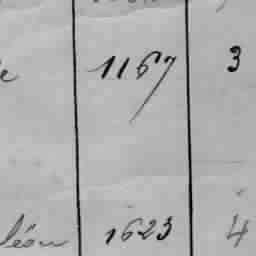 e 1167 3
léon 1623 4